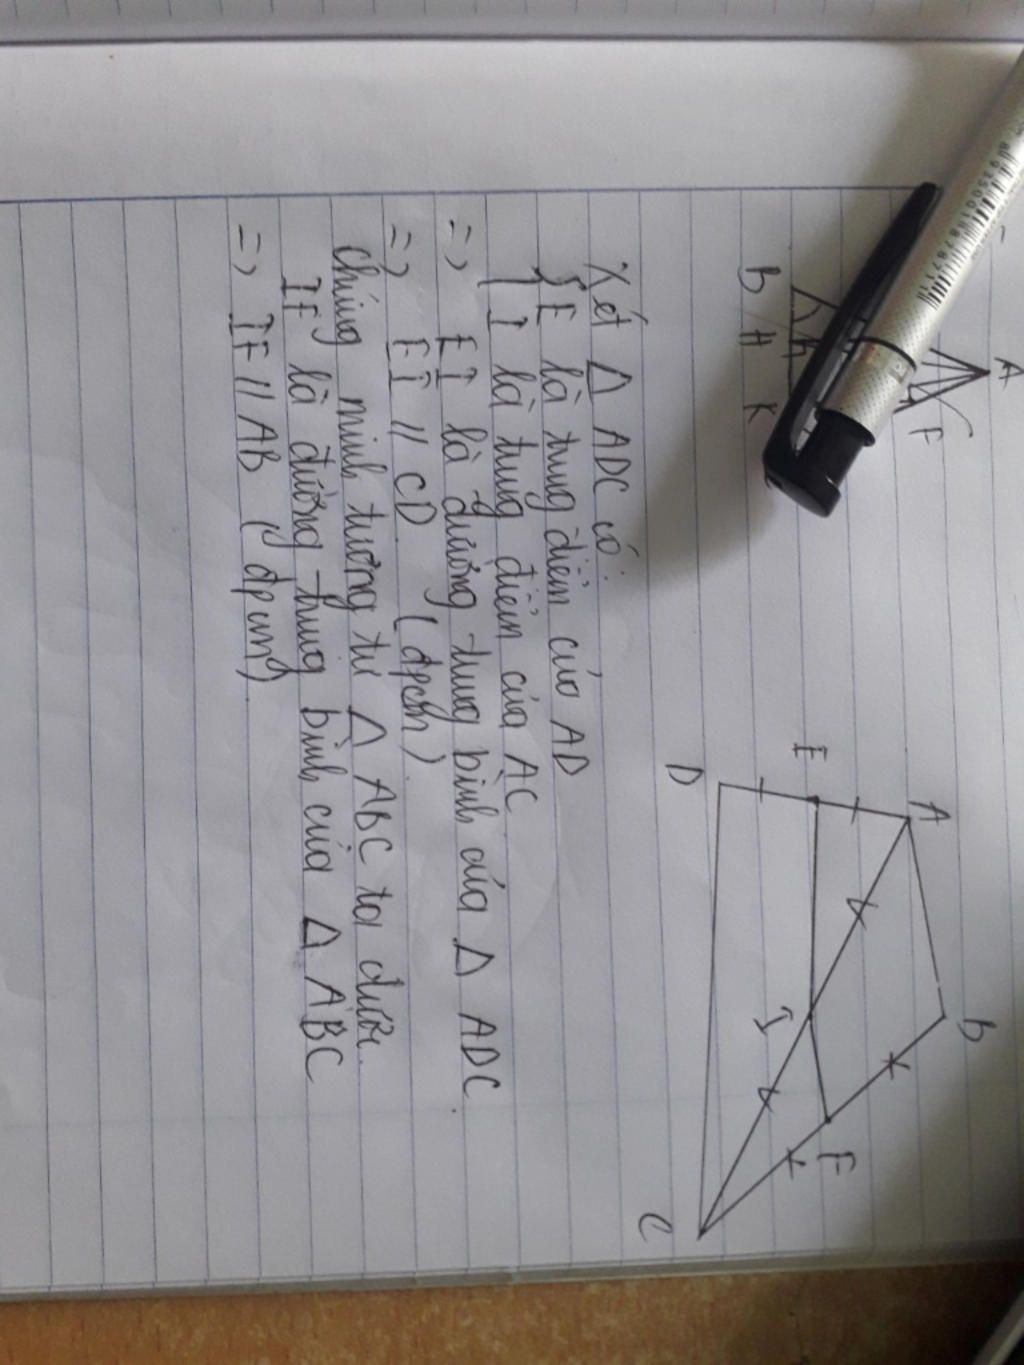 A
F
B H K
A
B
E
I
F
D
C
Xét Δ ADC có:
{ E là trung điểm của AD
I là trung điểm của AC
=> EI là đường trung bình của Δ ADC
=> EI // CD (đpcm)
Chứng minh tương tự Δ ABC ta được.
IF là đường trung bình của Δ ABC
=> IF // AB (đpcm)